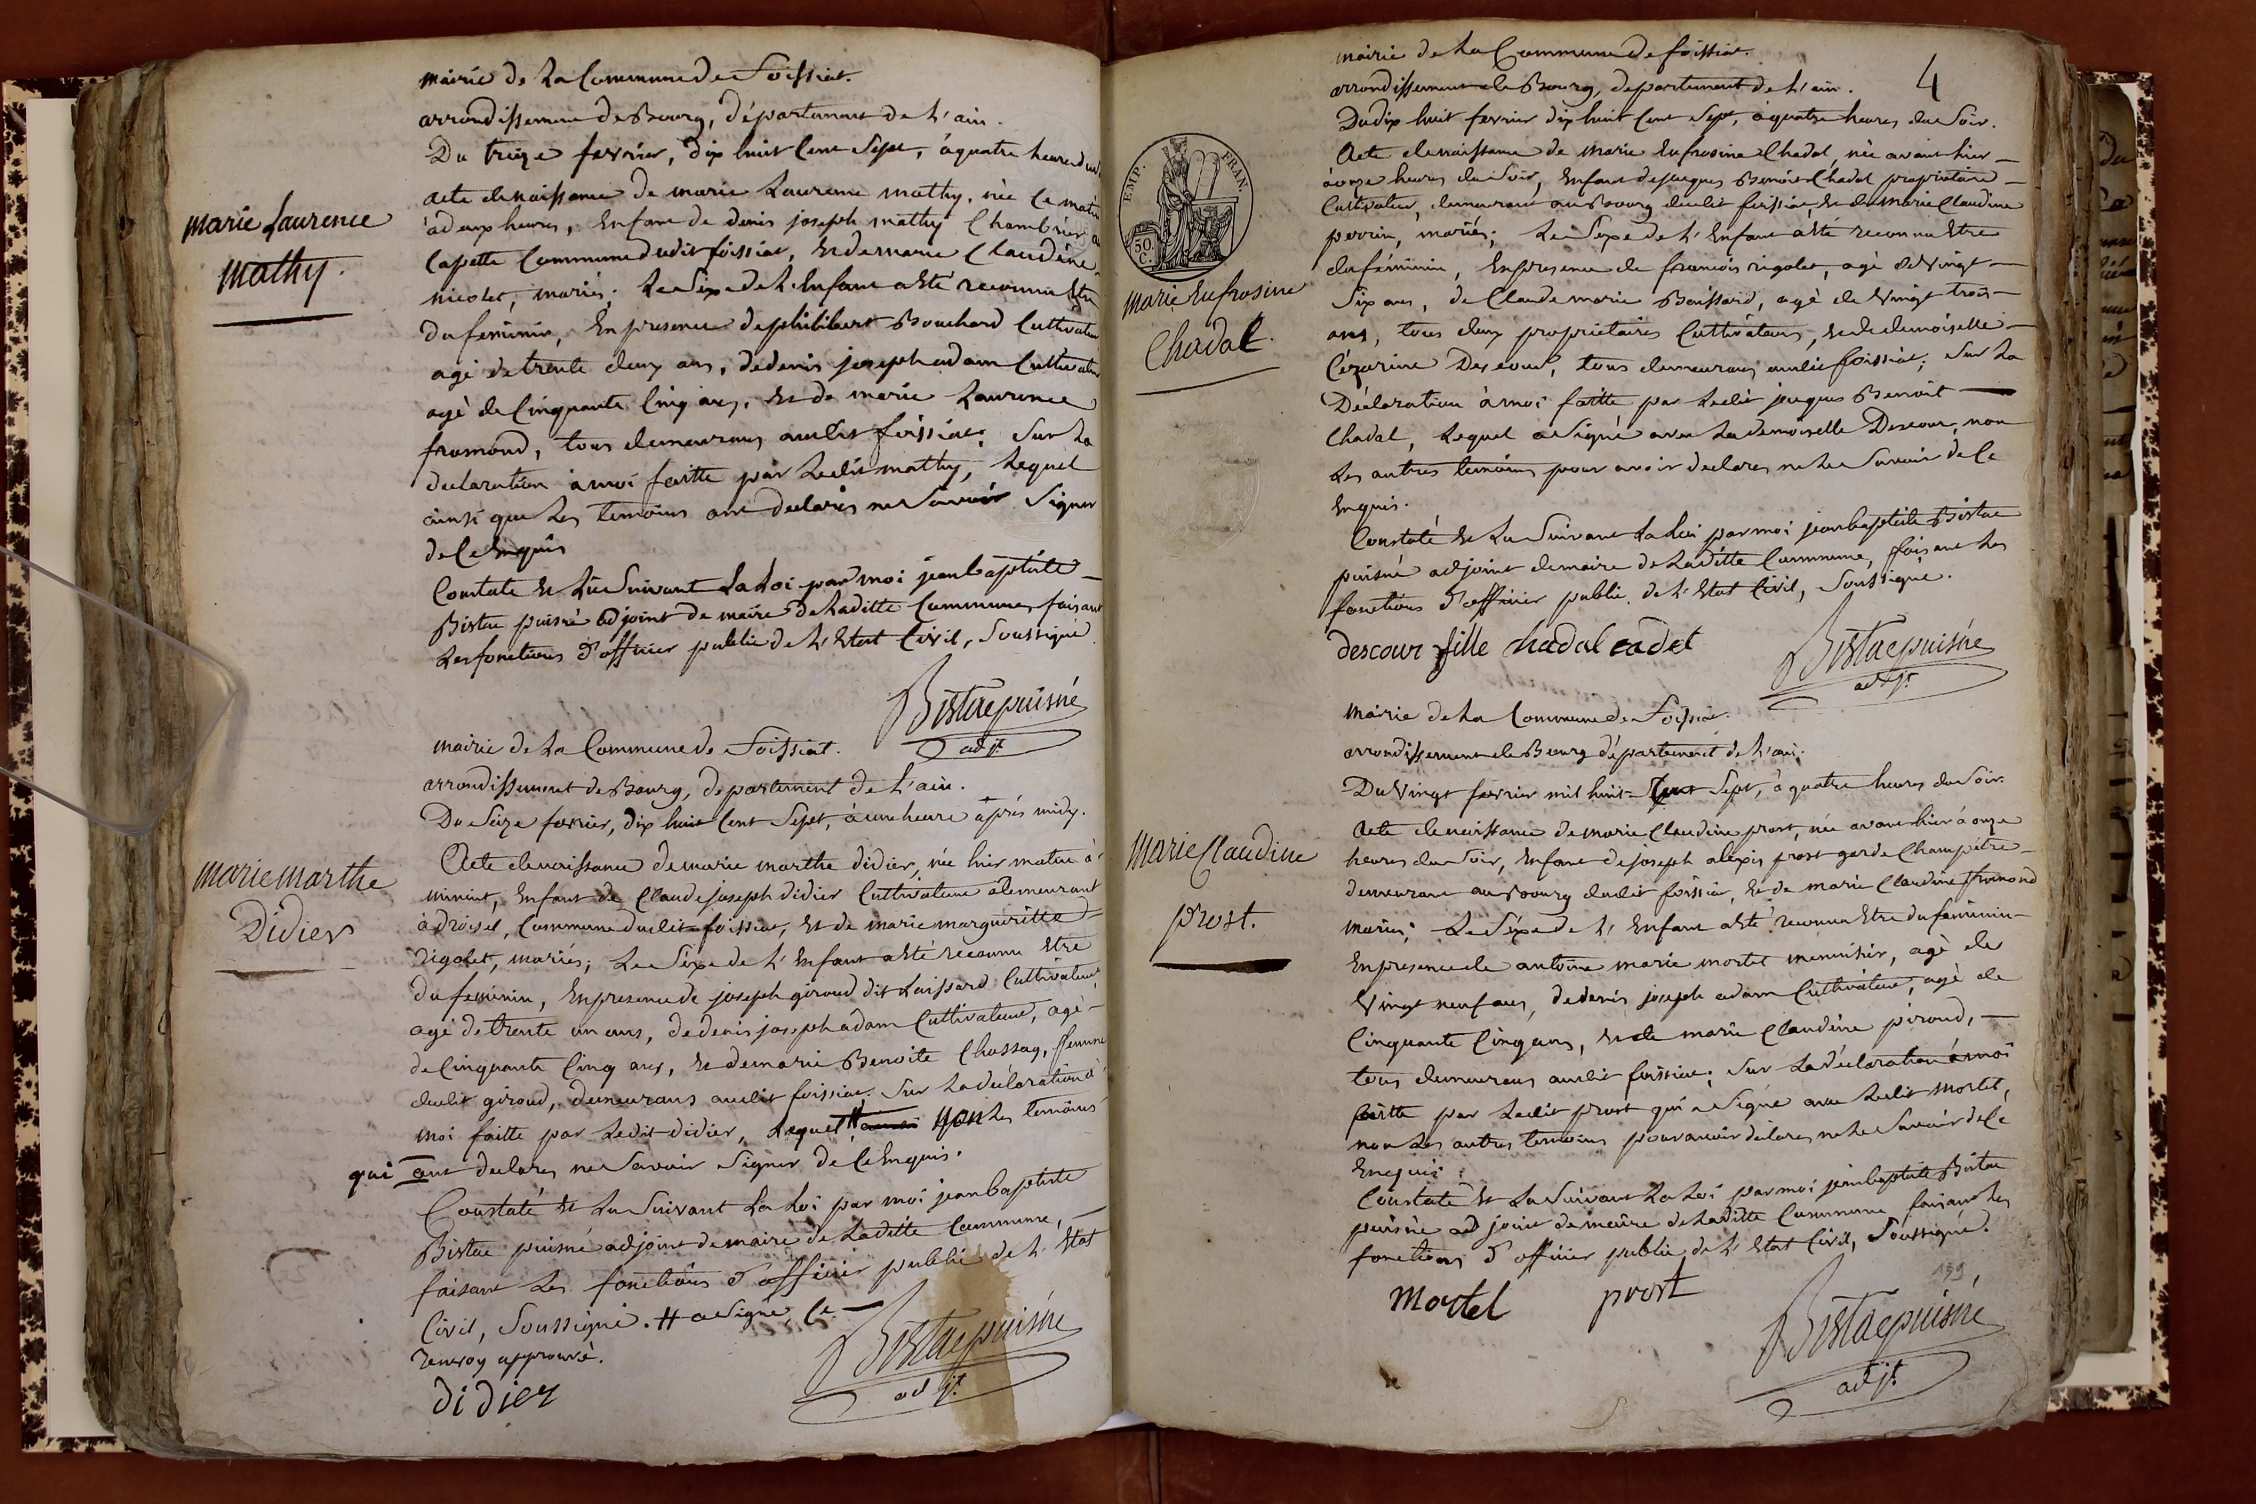 mairie de La Commune de Foissiat.
arrondissement de Bourg, département de L'ain.
Du treize fevrier, dix huit Cent Sept, à quatre heures du
acte de naissance de marie Laurence mathy, née Ce matin
à deux heures, Enfant de denis joseph mathy
Capette Commune dudit foissiat, Et de marie Claudine
nicolet, mariés; Le Sexe de L'Enfant a Eté reconnu Etre
du feminin, En presence de philibert Bouchard Cultivateur
agé de trente deux ans, de denis joseph adam Cultivateur
agé de Cinquante Cinq ans, Et de marie Laurence
fromond, tous demeurans audit foissiat; Sur La
declaration à moi faitte par Ledit mathy, Lequel
ainsi que Les temoins ont declarés ne Savoir Signer
de Ce Enquis
Constaté Et Lu Suivant La Loi par moi jean baptiste
Bistac puisné adjoint de maire de Laditte Commune, faisant
Les fonctions d'officier public de L'Etat Civil, Soussigné
marie Laurence
mathy.
Bistac puisné
adjt.
mairie de La Commune de Foissiat.
arrondissement de Bourg, departement de L'ain.
Du Seize fevrier, dix huit Cent Sept, à une heure après midy.
Acte de naissance de marie marthe didier, née hier matin à
minuit, Enfant de Claude joseph didier Cultivateur demeurant
à droisel, Commune dudit foissiat, Et de marie margueritte
rigolet, mariés; Le Sexe de L'Enfant a Eté reconnu Etre
du feminin, En presence de joseph giroud dit Laissard Cultivateur,
agé de trente un ans, de denis joseph adam Cultivateur, agé
de Cinquante Cinq ans, Et de marie Benoite Chassag, femme
dudit giroud, demeurans audit foissiat, Sur La declaration à
moi faitte par Ledit didier, Lequel # non Les temoins
qui ont declarés ne Savoir Signer de Ce Enquis.
Constaté Et Lu Suivant La Loi par moi jean baptiste
Bistac puisné adjoint de maire de Laditte Commune,
faisant Les fonctions d'officier public de L'Etat
Civil, Soussigné. # a Signé, Ce
renvoy approuvé.
didier
marie marthe
Didier
Bistac puisné
adjt.
4
mairie de La Commune de foissiat.
arrondissement de Bourg, departement de L'ain.
Du dix huit fevrier dix huit Cent Sept, à quatre heures du Soir.
Acte de naissance de marie Eufrosine Chadal, née avant hier
à onze heures du Soir, Enfant de jacques Benoit Chadal proprietaire
Cultivateur, demeurant au Bourg dudit foissiat, Et de marie Claudine
perrin, mariés; Le Sexe de L'Enfant a Eté reconnu Etre
du féminin, En presence de francois rigolet, agé de Vingt
Six ans, de Claude marie Boissard, agé de Vingt trois
ans, tous deux proprietaires Cultivateurs, Et de demoiselle
Cézarine Descour, tous demeurans audit foissiat; Sur La
Déclaration à moi faitte par Ledit jacques Benoit
Chadal, Lequel a Signé avec La demoiselle Descour, non
Les autres temoins pour avoir declarés ne Le Savoir de Ce
Enquis.
Constaté Et Lu Suivant La Loi par moi jean baptiste Bistac
puisné adjoint de maire de Laditte Commune, faisant Les
fonctions d'officier public de L'Etat Civil, Soussigné.
EMP. FRAN.
50. C.
marie Eufrosine
Chadal.
descour fille chadal cadet
Bistac puisné
adjt.
mairie de La Commune de Foissiat.
arrondissement de Bourg département de L'ain.
Du Vingt fevrier mil huit Cent Sept, à quatre heures du Soir.
Acte de naissance de marie Claudine prost, née avant hier à onze
heures du Soir, Enfant de joseph alexis prost garde Champêtre
demeurant au Bourg dudit foissiat, Et de marie Claudine fromond
mariés; Le Séxe de L'Enfant a Eté reconnu Etre du feminin
En presence de antoine marie mortel menuisier, agé de
Vingt neuf ans, de denis joseph adam Cultivateur, agé de
Cinquante Cinq ans, Et de marie Claudine piroud,
tous demeurans audit foissiat; Sur La déclaration à moi
faitte par Ledit prost qui a Signé avec Ledit mortel,
non Les autres temoins pour avoir déclarés ne Le Savoir de Ce
Enquis.
Constaté Et Lu Suivant La Loi par moi jean baptiste Bistac
puisné adjoint de maire de Laditte Commune faisant Les
fonctions d'officier public de L'Etat Civil, Soussigné.
marie Claudine
prost.
199
mortel prost
Bistac puisné
adjt.